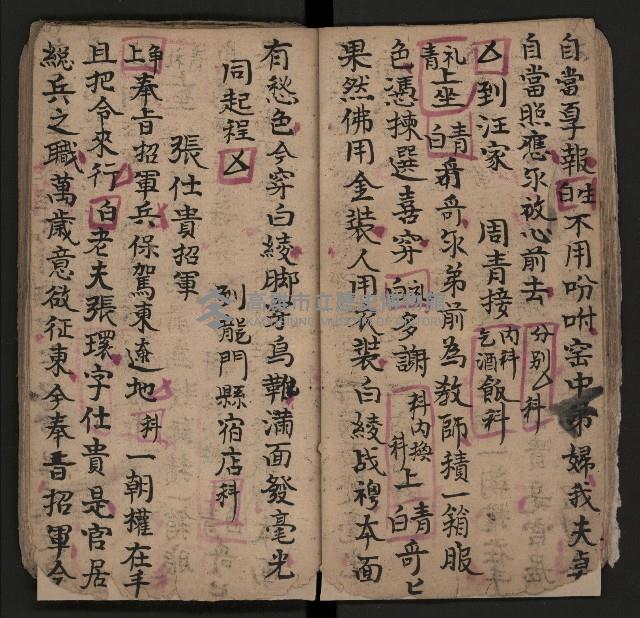 自當享報白生不用吩咐窑中弟婦我夫卓
自當照應尔放心前去 分别厶科
厶到汪家 周青接 内科乞酒飯科
礼上坐青白 青哥哥尔弟前為教師積一箱服
色憑揀選喜穿白礼多謝 科内換科上青白哥匕
果然佛用金裝人用衣裝白綾战袍本面
有愁色今穿白綾脚
難滿面發毫光
同起程厶 到龍門縣宿店科
張仕貴招軍
净上奉旨招軍兵保駕東遼地科一朝權在手
且把令來行白老夫張環字仕貴是官居
緫兵之職萬歲意欲征東今奉旨招軍今
高雄市立歷史博物館
KAOHSIUNG MUSEUM OF HISTORY